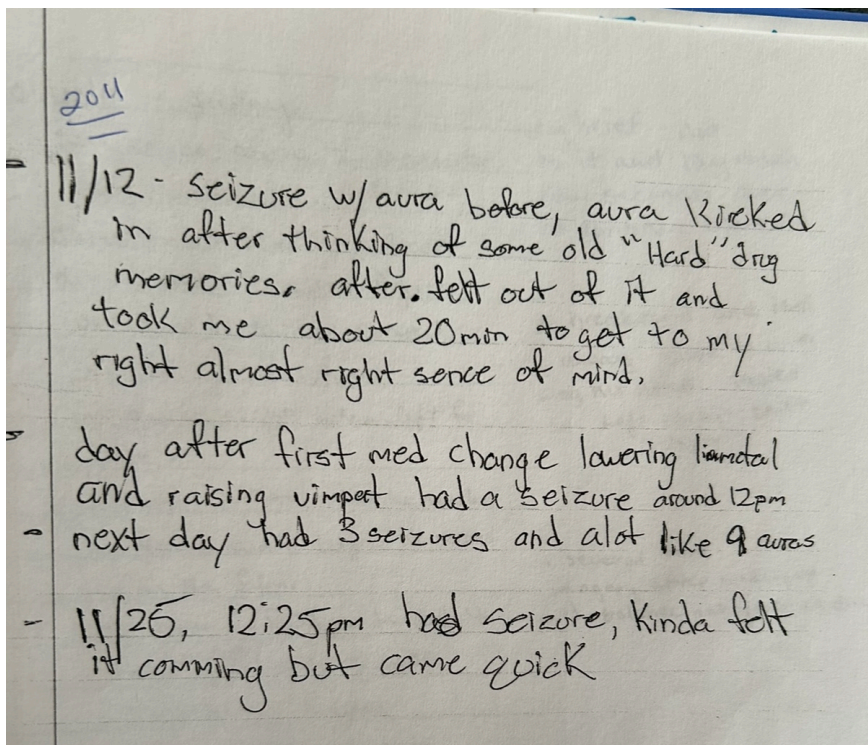 2011
11/12 - seizure w/ aura before, aura kicked
in after thinking of some old "Hard" drug
memories. after. felt out of it and
took me about 20min to get to my
right almost right sence of mind.
day after first med change lowering
and raising vimpat had a seizure around 12pm
next day had 3 seizures and alot like 9 auras
- 11/25, 12:25pm had seizure, Kinda felt
it comming but came quick